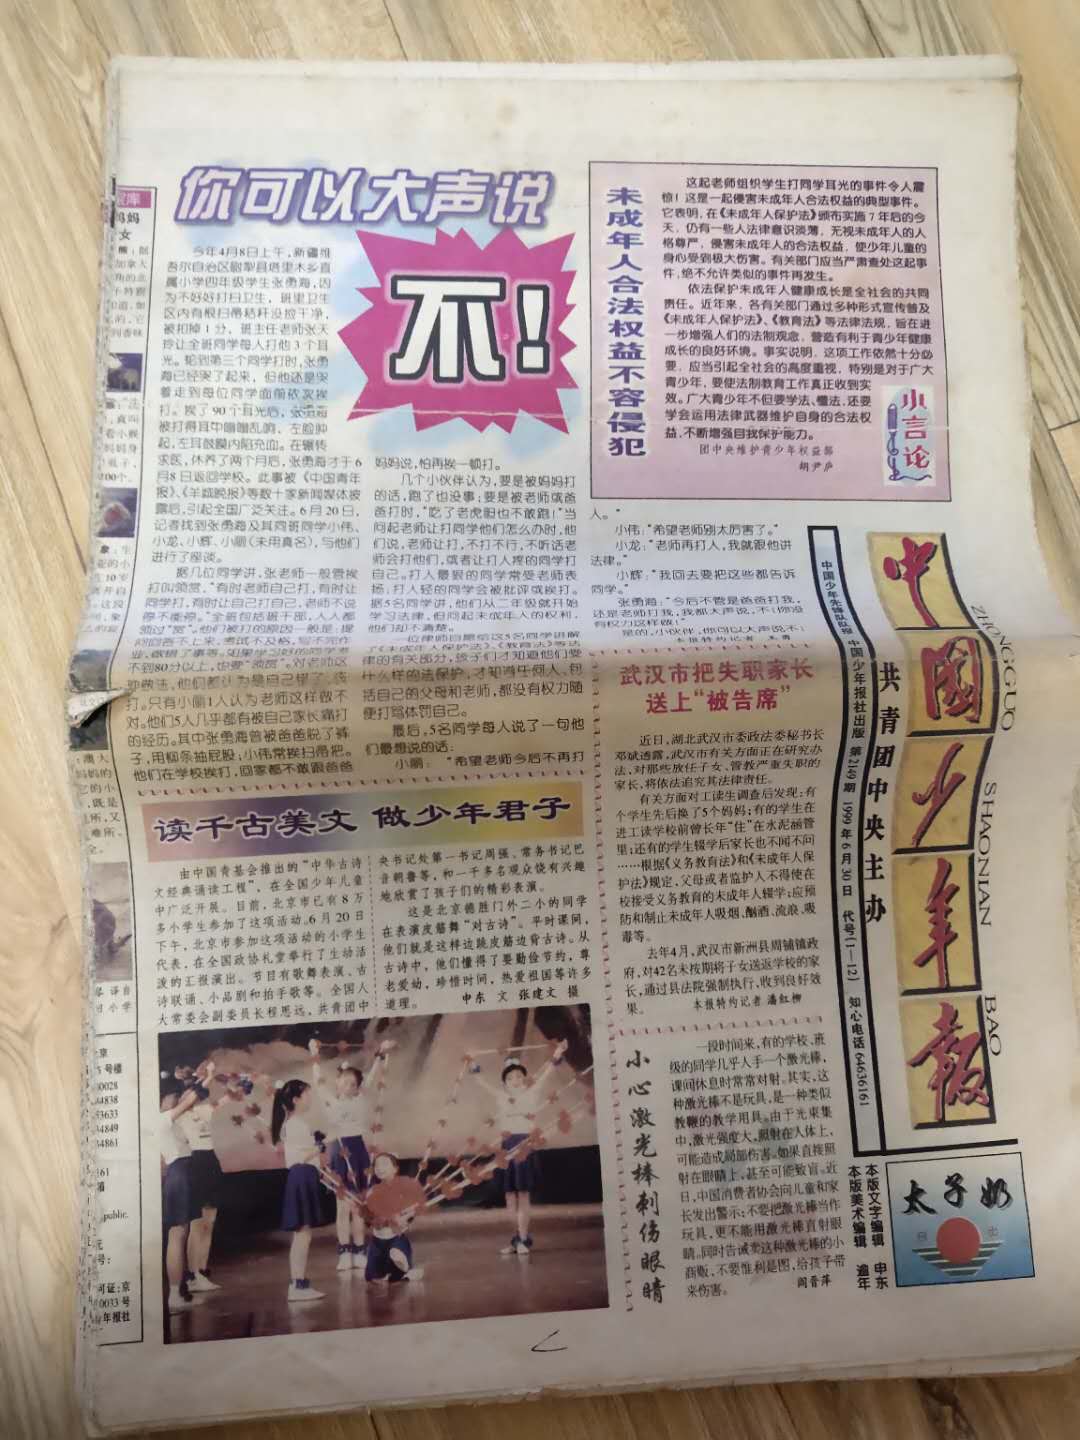 你可以大声说
不！
今年4月8日上午，新疆维
吾尔自治区尉犁县塔里木乡直
属小学四年级学生张勇海，因
为不好好打扫卫生，班里卫生
区内有根扫帚秸秆没捡干净，
被扣掉1分，班主任老师张天
玲让全班同学每人打他3个耳
光。轮到第三个同学打时，张勇
海已经哭了起来，但他还是哭
着走到每位同学面前依次挨
打。挨了90个耳光后，张勇海
被打得耳中嗡嗡乱响，左脸肿
起，左耳鼓膜内陷充血。在辗转
求医，休养了两个月后，张勇海才于6
月8日返回学校。此事被《中国青年
报》、《羊城晚报》等数十家新闻媒体披
露后，引起全国广泛关注。6月20日，
记者找到张勇海及其同班同学小伟、
小龙、小辉、小丽(未用真名)，与他们
进行了座谈。
据几位同学讲，张老师一般管挨
打叫领赏，“有时老师自己打，有时让
同学打，有时让自己打自己，老师不说
停不能停。”全班包括班干部，人人都
领过“赏”。他们被打的原因一般是：提
问回答不上来，考试不及格，写不完作
业，做错了事等。如果学习好的同学考
不到80分以上，也要“领赏”。对老师这
种做法，他们都认为是自己错了，该
打。只有小丽1人认为老师这样做不
对。他们5人几乎都有被自己家长痛打
的经历。其中张勇海曾被爸爸脱了裤
子，用柳条抽屁股，小伟常挨扫帚把。
他们在学校挨打，回家都不敢跟爸爸
妈妈说，怕再挨一顿打。
几个小伙伴认为，要是被妈妈打
的话，跑了也没事；要是被老师或爸
爸打时，“吃了老虎胆也不敢跑！”当
问起老师让打同学他们怎么办时，他
们说，老师让打，不打不行，不听话老
师会打他们，或者让打人疼的同学打
自己。打人最狠的同学常受老师表
扬；打人轻的同学会被批评或挨打。
据5名同学讲，他们从二年级就开始
学习法律，但问起未成年人的权利，
他们却不清楚。
一位律师自愿给这5名同学讲解
了《未成年人保护法》、《教育法》等法
律的有关部分，孩子们才知道他们受
什么样的法保护，才知道任何人，包
括自己的父母和老师，都没有权力随
便打骂体罚自己。
最后，5名同学每人说了一句他
们最想说的话：
小丽：“希望老师今后不再打
人。”
小伟：“希望老师别太厉害了。”
小龙：“老师再打人，我就跟他讲
法律。”
小辉：“我回去要把这些都告诉
同学。”
张勇海：“今后不管是爸爸打我，
还是老师打我，我都大声说，不！你没
有权力这样做！”
是的，小伙伴，你可以大声说不！
未成年人合法权益不容侵犯
这起老师组织学生打同学耳光的事件令人震
惊！这是一起侵害未成年人合法权益的典型事件。
它表明，在《未成年人保护法》颁布实施7年后的今
天，仍有一些人法律意识淡薄，无视未成年人的人
格尊严，侵害未成年人的合法权益，使少年儿童的
身心受到极大伤害。有关部门应当严肃查处这起事
件，绝不允许类似的事件再发生。
依法保护未成年人健康成长是全社会的共同
责任。近年来，各有关部门通过多种形式宣传普及
《未成年人保护法》、《教育法》等法律法规，旨在进
一步增强人们的法制观念，营造有利于青少年健康
成长的良好环境。事实说明，这项工作依然十分必
要，应当引起全社会的高度重视，特别是对于广大
青少年，要使法制教育工作真正收到实
效。广大青少年不但要学法、懂法，还要
学会运用法律武器维护自身的合法权
益，不断增强自我保护能力。
团中央维护青少年权益部
胡尹庐
小言论
武汉市把失职家长
送上“被告席”
近日，湖北武汉市委政法委秘书长
邓斌透露，武汉市有关方面正在研究办
法，对那些放任子女、管教严重失职的
家长，将依法追究其法律责任。
有关方面对工读生调查后发现：有
个学生先后换了5个妈妈；有的学生在
进工读学校前曾长年“住”在水泥涵管
里；还有的学生辍学后家长也不闻不问
……根据《义务教育法》和《未成年人保
护法》规定，父母或者监护人不得使在
校接受义务教育的未成年人辍学；应预
防和制止未成年人吸烟、酗酒、流浪、吸
毒等。
去年4月，武汉市新洲县周铺镇政
府，对42名未按期将子女送返学校的家
长，通过县法院强制执行，收到良好效
果。
本报特约记者 潘红柳
读千古美文 做少年君子
由中国青基会推出的“中华古诗
文经典诵读工程”，在全国少年儿童
中广泛开展。目前，北京市已有8万
多小学生参加了这项活动。6月20日
下午，北京市参加这项活动的小学生
代表，在全国政协礼堂举行了生动活
泼的汇报演出。节目有歌舞表演、古
诗联诵、小品剧和拍手歌等。全国人
大常委会副委员长程思远，共青团中
央书记处第一书记周强、常务书记巴
音朝鲁等，和一千多名观众饶有兴趣
地欣赏了孩子们的精彩表演。
这是北京德胜门外二小的同学
在表演皮筋舞“对古诗”。平时课间，
他们就是这样边跳皮筋边背古诗。从
古诗中，他们懂得了要勤俭节约，尊
老爱幼，珍惜时间，热爱祖国等许多
道理。
申东 文 张建文 摄
小心激光棒刺伤眼睛
一段时间来，有的学校、班
级的同学几乎人手一个激光棒，
课间休息时常常对射。其实，这
种激光棒不是玩具，是一种类似
教鞭的教学用具。由于光束集
中，激光强度大，照射在人体上，
可能造成局部伤害。如果直接照
射在眼睛上，甚至可能致盲。近
日，中国消费者协会向儿童和家
长发出警示：不要把激光棒当作
玩具，更不能用激光棒直射眼
睛。同时告诫卖这种激光棒的小
商贩，不要惟利是图，给孩子带
来伤害。
阎晋萍
中国少年报
ZHONGGUO
SHAONIAN
BAO
共青团中央主办
中国少年先锋队队报 中国少年报社出版 第2149期 1999年6月30日 代号(1—12) 知心电话64636161
本版文字编辑 申东
本版美术编辑 逾年
太子奶